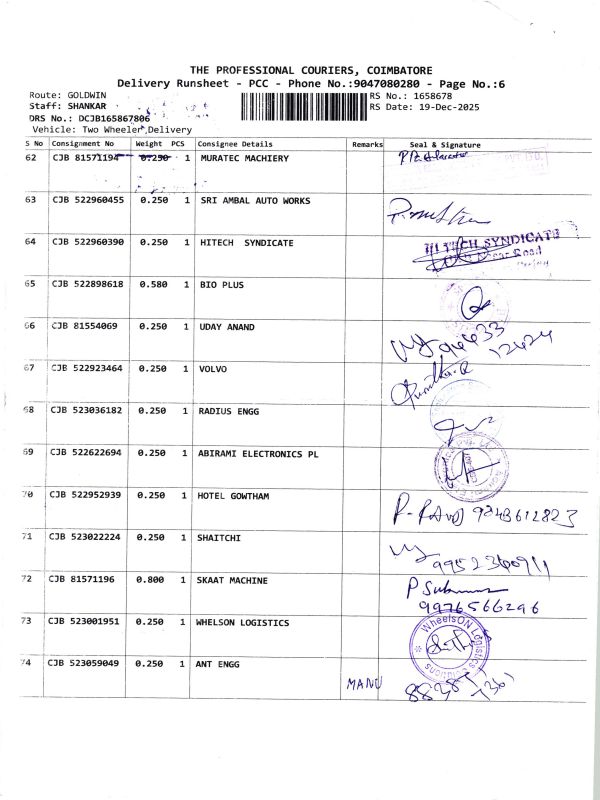 THE PROFESSIONAL COURIERS, COIMBATORE
Delivery Runsheet - PCC - Phone No.:9047080280 - Page No.:6
Route: GOLDWIN RS No.: 1658678
Staff: SHANKAR RS Date: 19-Dec-2025
DRS No.: DCJB165867806
Vehicle: Two Wheeler,Delivery
S No Consignment No Weight PCS Consignee Details Remarks Seal & Signature
62 CJB 81571194 0.250 1 MURATEC MACHIERY
63 CJB 522960455 0.250 1 SRI AMBAL AUTO WORKS
64 CJB 522960390 0.250 1 HITECH SYNDICATE HI TECH SYNDICATE
Road
65 CJB 522898618 0.580 1 BIO PLUS
66 CJB 81554069 0.250 1 UDAY ANAND
67 CJB 522923464 0.250 1 VOLVO
68 CJB 523036182 0.250 1 RADIUS ENGG
69 CJB 522622694 0.250 1 ABIRAMI ELECTRONICS PL
70 CJB 522952939 0.250 1 HOTEL GOWTHAM
71 CJB 523022224 0.250 1 SHAITCHI
72 CJB 81571196 0.800 1 SKAAT MACHINE
9976566296
73 CJB 523001951 0.250 1 WHELSON LOGISTICS WheelsON Logistics Solutions
74 CJB 523059049 0.250 1 ANT ENGG
MANU